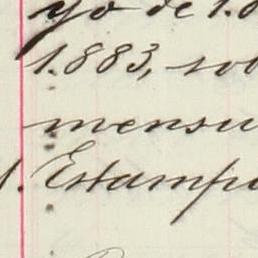 yo de 1.8
1.883, sob
mensu
1. Estampi